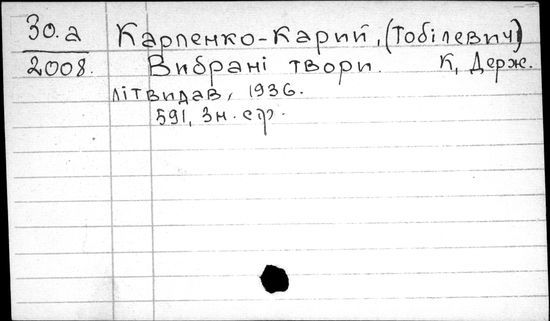 30.а Карпенко-Карий, (Тобілевич)
2008. Вибрані твори. К, Держ.
літвидав, 1936.
591, 3н. стр.